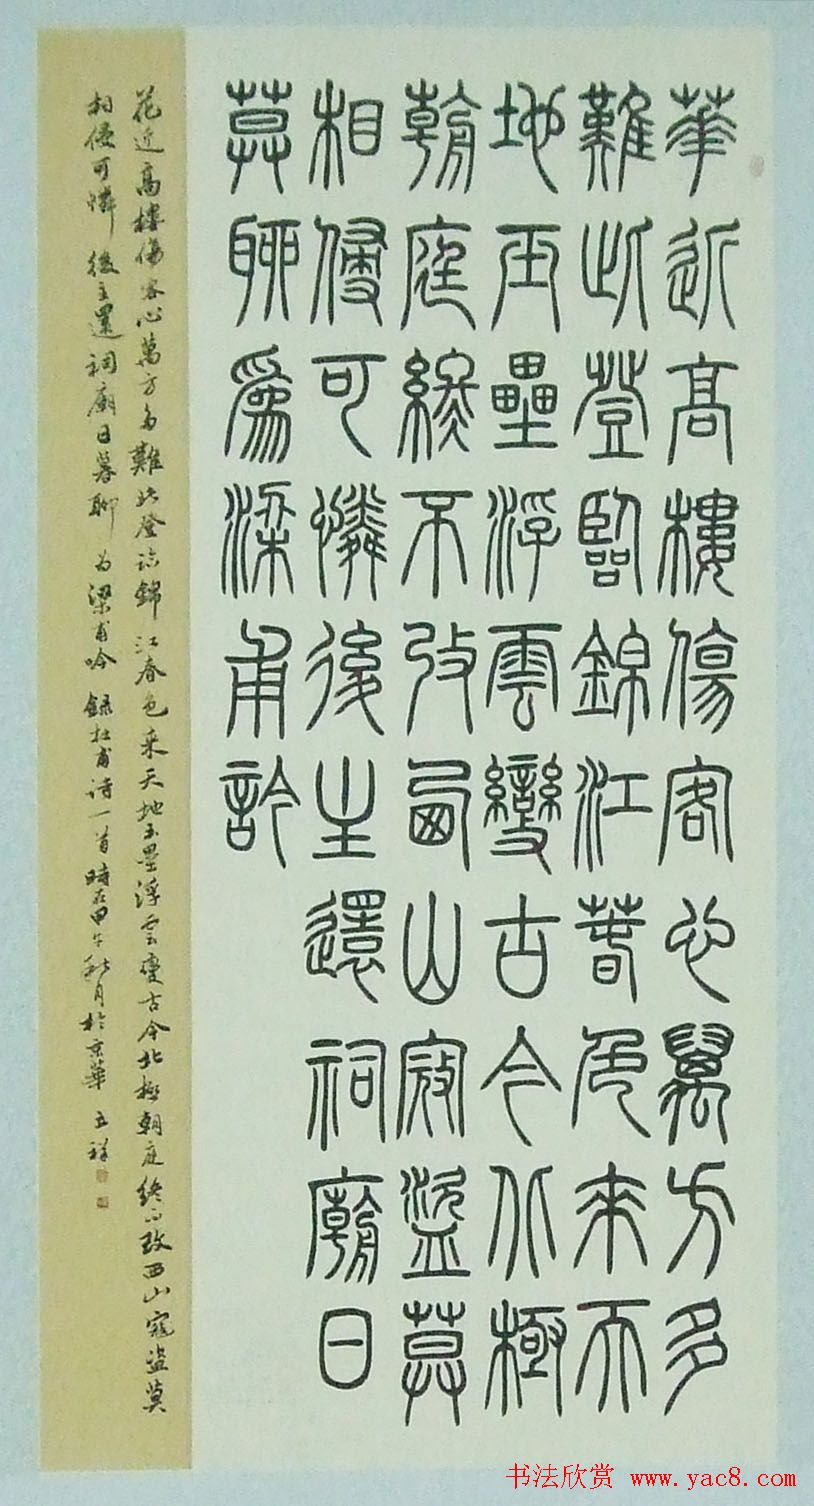 華近高樓傷客心萬方多
難此登臨錦江春色來天
地玉壘浮雲變古今北極
朝庭終不改西山寇盜莫
相侵可憐後主還祠廟日
莫聊爲梁甫吟
花近高樓傷客心萬方多難此登臨錦江春色来天地玉壘浮雲變古今北極朝庭終不改西山寇盜莫
相侵可憐後主還祠廟日暮聊为梁甫吟 録杜甫诗一首 時在甲午秋月於京華 祥
书法欣赏 www.yac8.com